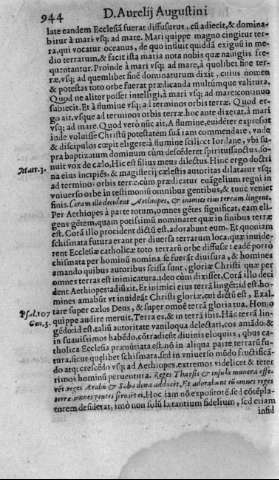 944 D. Aurelij Augustini
late eandem Ecclesiā fuerat diffusurus, cū adiecit, & dominabitur
à mari vsq; ad mare. Mari quippe magno cingitur terra,
qui vocatur oceanus, de quo influit quiddā exiguū in medio
terrarum, & facit ista maria nota nobis quæ nauigiis
Proinde à mari vsq; ad mare, à quolibet fine terræ,
vsq; ad quemlibet finē dominaturum dixit, cuius nomen
& potestas toto orbe fuerat prædicanda
Quod ne aliter posset intelligi, à mari vsq; ad mare,
subiecit. Et à flumine vsq; ad terminos orbis terræ. Quod ergo
ait, vsque ad terminos orbis terræ, hoc ait,
vsq; ad mare. Quod verò nūc ait, A flumine,
inde voluisse Christū potestatem suā iam commendare, vnde
& discipulos cœpit eligere, à flumine scilicet Iordane, vbi super
baptizatum dominum cum descēderet spiritussanctus, sonuit
vox de cælo. Hic est filius meus dilectus. Hinc ergo doctrina
eius incipiēs, & magisterij cælestis autoritas dilatatur vsq;
ad terminos orbis terræ, cùm prædicatur euāgelium regni in
vniuerso orbe in testimoniū omnibus gentibus, & tunc veniet
finis. Coram illo decident Aethiopes, & inimici eius terram lingent.
Per Aethiopes à parte totam, omnes gētes significat, eam eligens
gētem, quam potissimū nominaret quæ in finibus terræ
est. Corā illo procident dictū est, adorabunt eum. Et quoniam
schismata futura erant per diuersa terrarum loca, quæ inuiderent
Ecclesiæ catholicæ toto terrarū orbe diffusæ:
schismata per hominū nomina se fuerāt diuisura, & homines
amando quibus autoribus scissa sunt, gloriæ Christi quæ per
omnes terras est inimicarētur, ideo cùm dixisset, Corā illo decident
Aethiopes: addidit. Et inimici eius terrā lingēt: id est homines
amabūt vt inuideāt Christi gloriæ, cui dictū est, Exaltare
super cælos Deus, & super omnē terrā gloria tua. Homo
quippe audire meruit, Terra es, & in terrā ibis. Hāc terrā lingēdo:
id est, talium autoritate vaniloqua delectati, eos amādo &
in suauissimos habēdo, cōtradicūt diuinis eloquiis, quibus catholica
Ecclesia prænūtiata est, nō in aliqua parte terrarū
futura, sicut quælibet schismata, sed in vniuerso mūdo fructificādo
atq; crescēdo vsq; ad Aethiopes, extremos videlicet &
hominū peruentura. Reges Tharsis & insulæ munera offerēt,
reges Arabū & Saba dona adducēt. Et adorabunt eū omnes reges
terræ, omnes gentes seruiēt ei. Hoc iam nō expositorē
desiderat, imò non solū lætantium fidelium, sed etiam
infid
Matt. 3.
Psal. 107
Gen. 3.